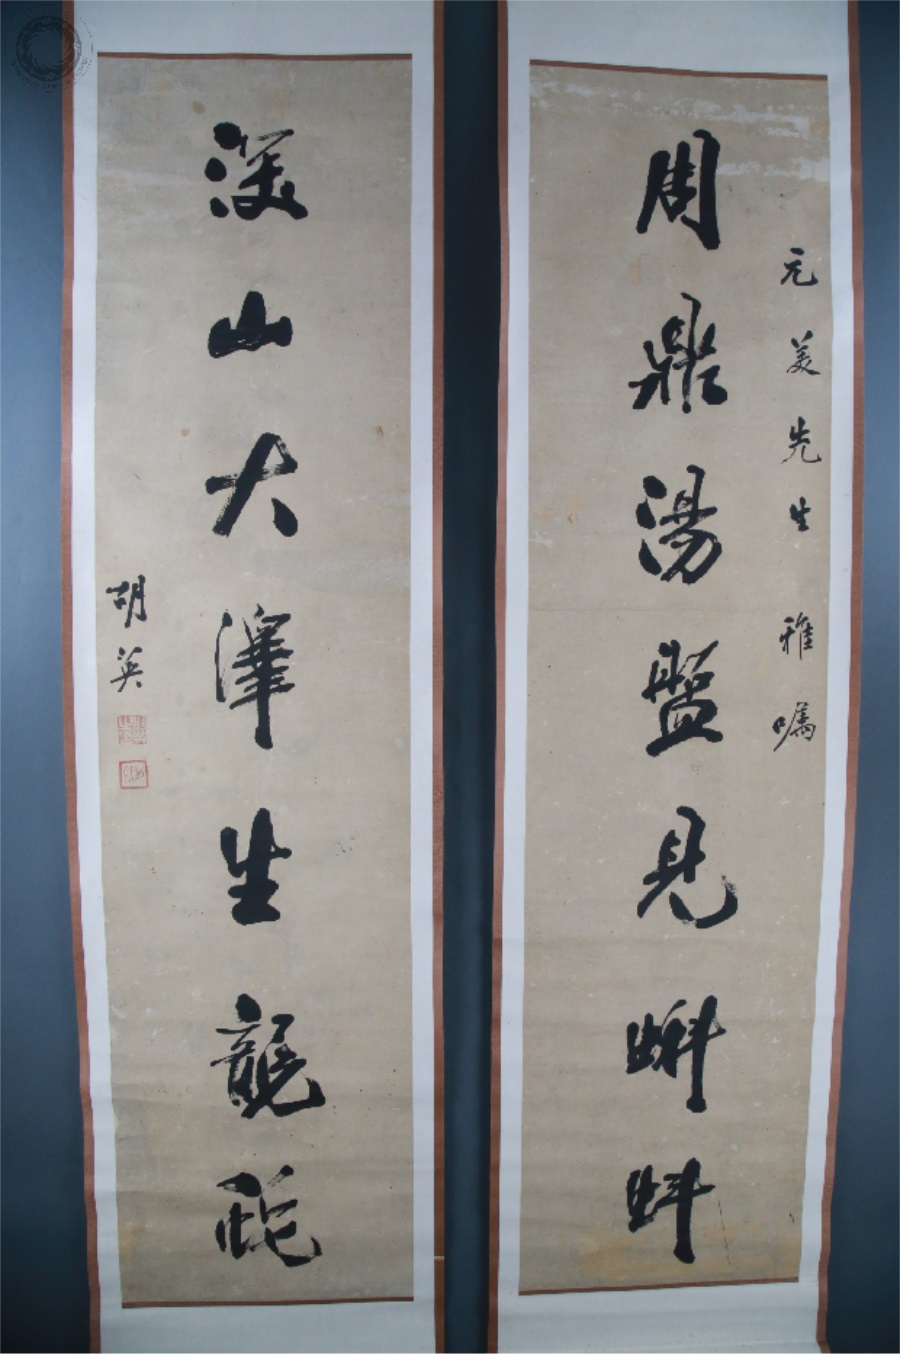 元美先生 雅嘱
周鼎湯盤見蝌蚪
深山大澤生龍蛇
胡英